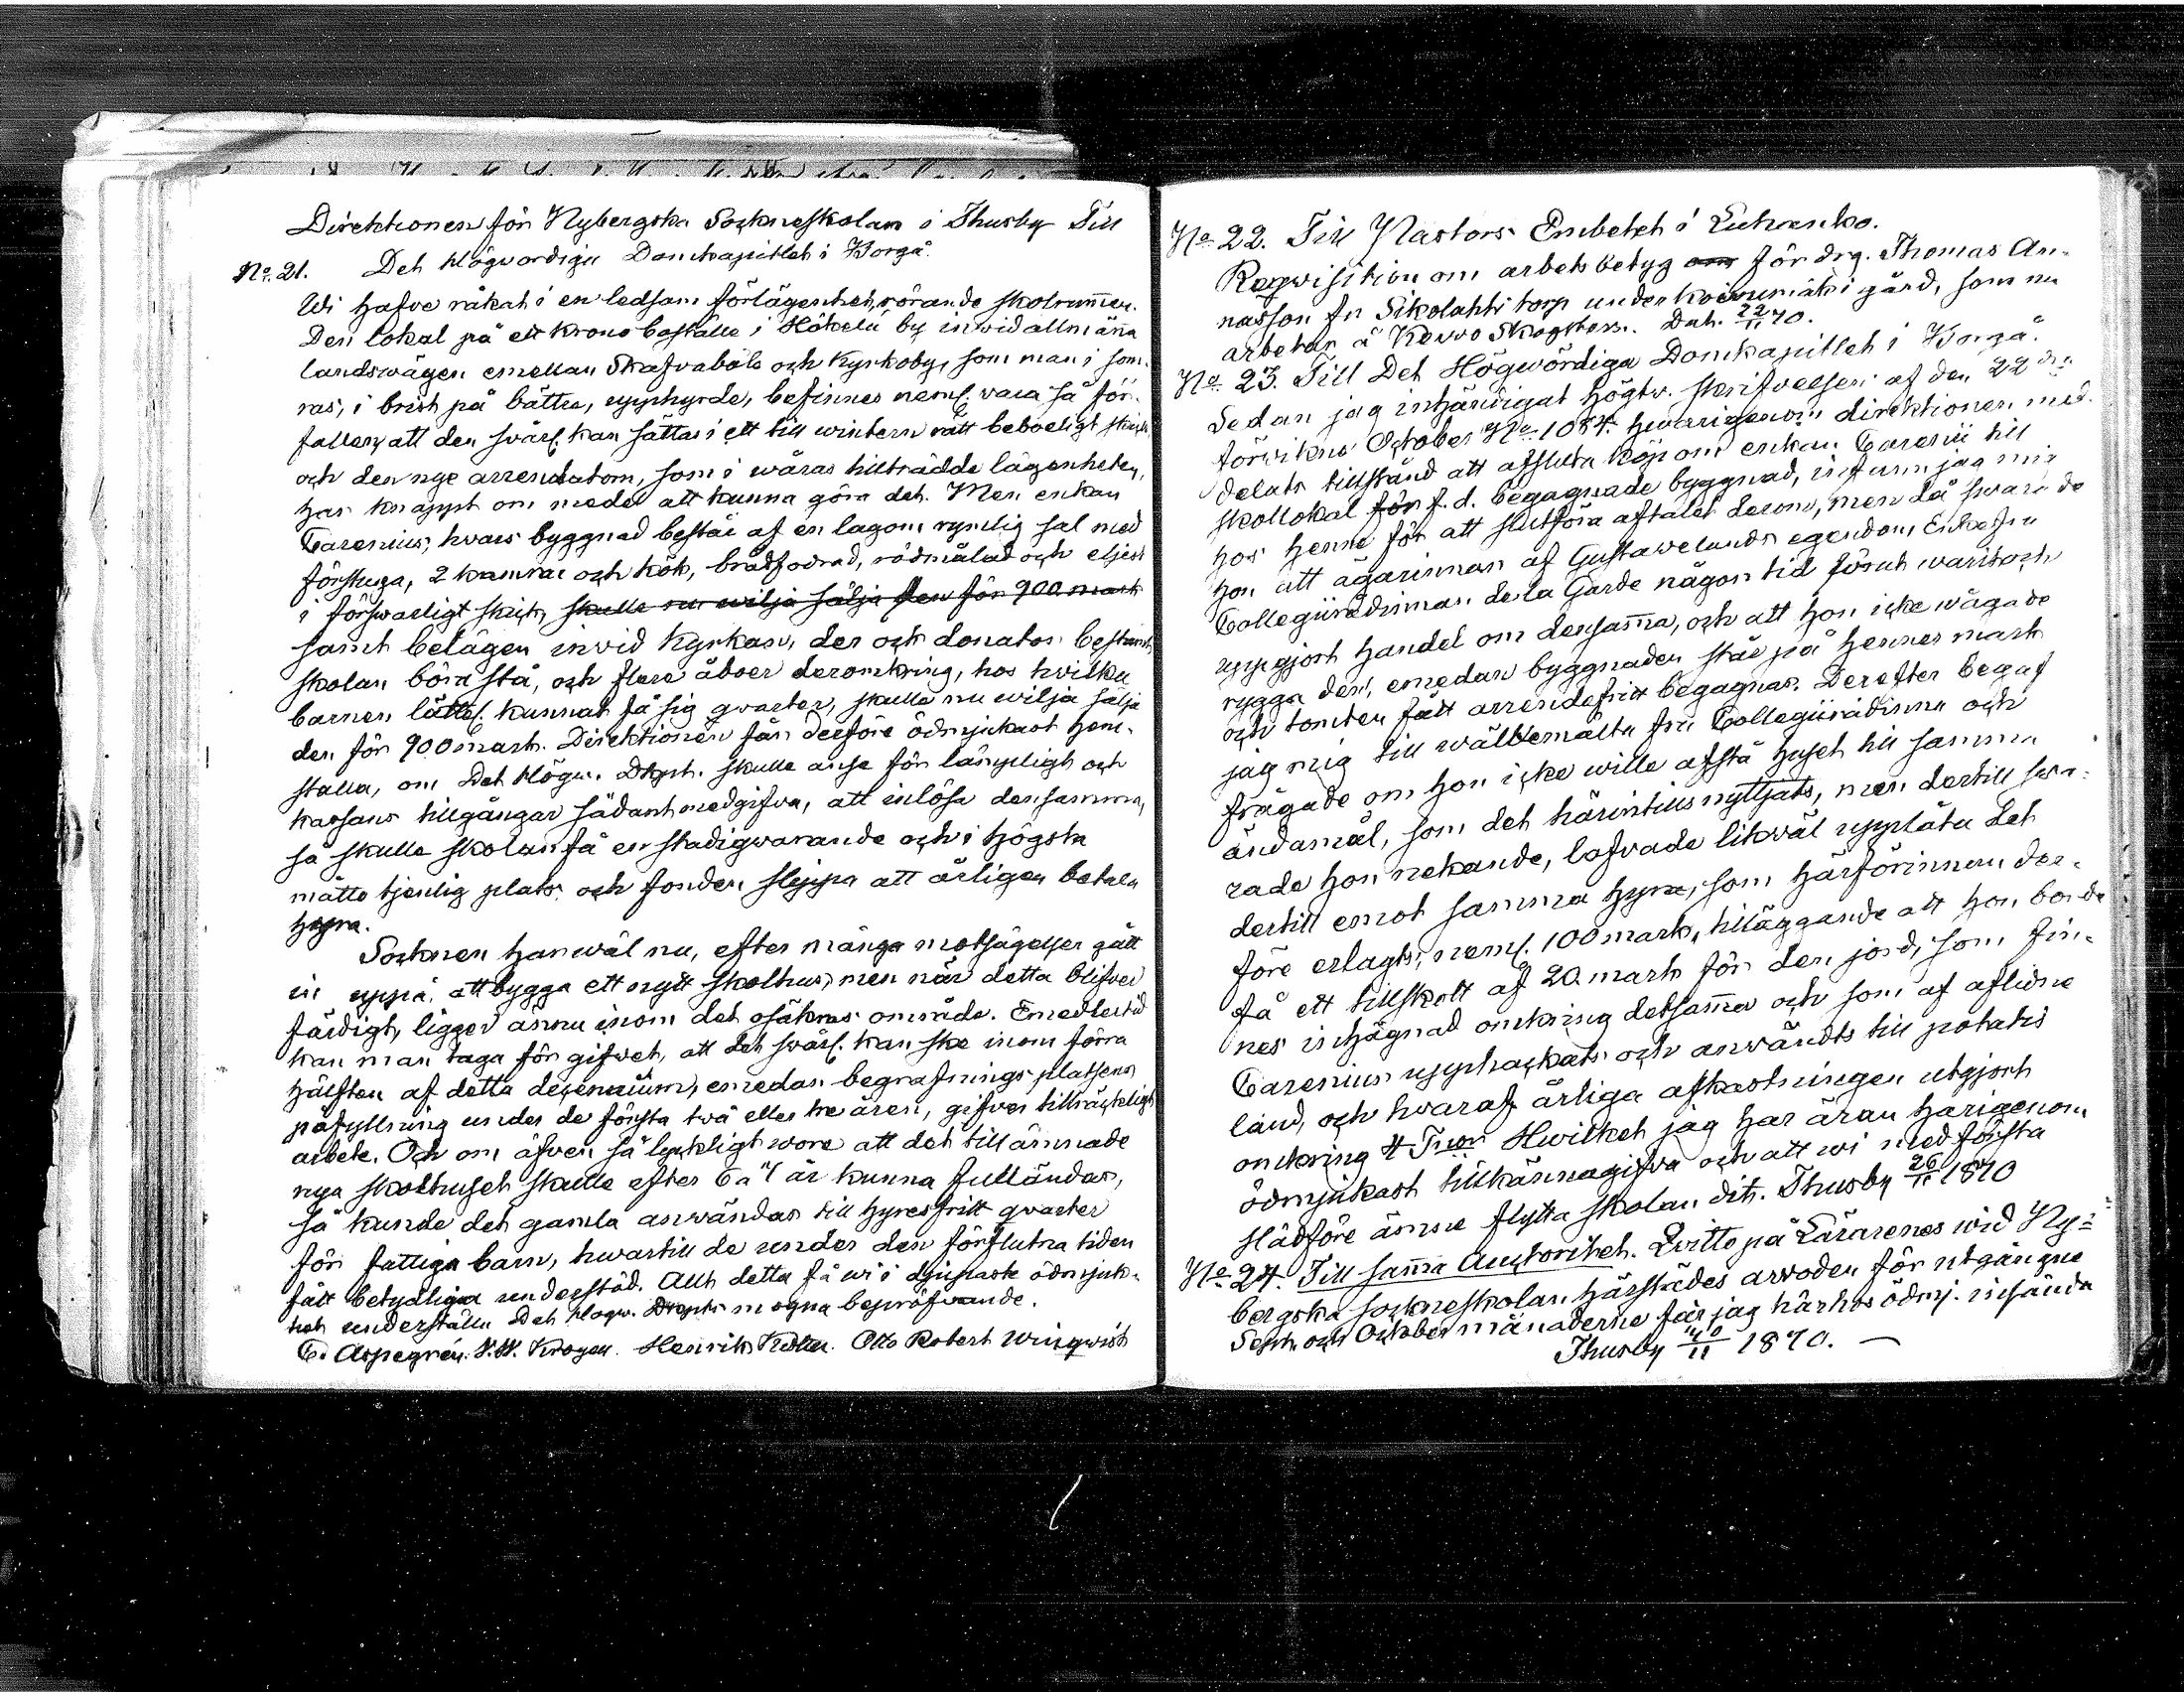 Direktionen för Nybergska Sockneskolan i Thusby Till
No. 21. Det Högvördiga Domkapitlet i Borgå.
Wi hafve råkat i en ledsam förlägenhet, rörande skolrummen.
Den lokal på ett kronoboställe i Hökelä by invid allmänna
landswägen emellan Skafvaböle och Kyrkoby, som man i som-
ras, i brist på bättre, upphyrde, befinnes neml. vara så för-
fallen, att den svårl. kan sättas i ett till wintern rätt beboeligt skick,
och den nye arrendatorn, som i wåras tillträdde lägenheten,
har knappt om medel att kunna göra det. Men enkan
Carenius, hvars byggnad består af en lagom rymlig sal med
förstuga, 2 kamrar och kök, brädfodrad, rödmålad och eljest
i förswarligt skick, skulle nu wilja sälja den för 900 mark
samt belägen invid Kyrkan, der och donator bestämt
skolan böra stå, och flere åboer deromkring, hos hvilka
barnen lättel. kunnat få sig qvarter, skulle nu wilja sälja
den för 900 mark. Direktionen får derföre ödmjukast hem-
ställa, om Det Högw. Dkpt. skulle anse för lämpligt och
kassans tillgångar sådant medgifva, att inlösa densamma,
så skulle skolan få en stadigwarande och i högsta
måtto tjenlig plats och fonden slippa att årligen betala
hyra.
Socknen har wäl nu, efter många motsägelser gått
in uppå att bygga ett nytt skolhus, men när detta blifver
färdigt, ligger ännu inom det osäkras område. Emedlertid
kan man taga för gifwet, att det svårl. kan ske inom förra
hälften af detta decennium, emedan begrafningsplatsens
påfyllning under de första twå eller tre åren, gifver tillräckligt
arbete. Och om äfven så lyckligt wore att det tillämnade
nya skolhuset skulle efter 6 a 7 år kunna fulländas,
så kunde det gamla anwändas till hyresfritt qvarter
för fattiga barn, hwartill de under den förflutna tiden
fått betydliga understöd. Allt detta få wi i djupaste ödmjuk-
het underställa Det Högw. Dkpts mogna bepröfvande.
C. Aspegrén. Henrik Otto Robert Winqwist
No. 22. Till Pastors Embetet i Euhrenko.
Reqwisition om arbetsbetyg om för drg. Thomas An-
nasson fr Sikolahti torp under i gård, som nu
arbetar å Kervo Skogstorp. Dat. 22/11 70.
No. 23. Till Det Högwördiga Domkapitlet i Borgå.
Sedan jag inhändigat högtw. skrifvelsen af den 22dra
förwikne October No. 1084. hwarigenom direktionen med-
delats tillstånd att afsluta köp om enkan Carenii till
skollokal för f. d. begagnade byggnad, infann jag mig
hos henne för att slutföra aftalet derom, men då swarade
hon att ägarinnan af Gustawelunds egendom, Enkefru
Collegiirådinnan de la Garde någon tid förut warit och
uppgjort handel om densamma, och att hon icke wågade
rygga den, emedan byggnaden står på hennes mark
och tomten fått arrendefritt begagnas. Derefter begaf
jag mig till wälbemälta fru Collegiirådinna och
frågade om hon icke wille afstå huset till samma
ändamål, som det härintills nyttjats, men dertill swa-
rade hon nekande, lofvade likwäl upplåta det
dertill emot samma hyra, som härförinnan der-
före erlagts, neml. 100 mark, tilläggande att hon borde
få ett tillskott af 20 mark för den jord, som fin-
nes inhägnad omkring detsamma och som af aflidne
Carenius upphackats och anwändts till potatis
land, och hvaraf årliga afkastningen utgjort
omkring 4 Tnor Hwilket jag har äran härigenom
ödmjukast tillkännagifva och att wi med första
slädföre ämne flytta skolan dit. Thusby 26/11 1870
No. 24. Till samma Auctoritet. Qvitto på Lärarenes wid Ny-
bergska sockneskolan härstädes arvoden för utgångne
Sept. och October månaderne får jag härhos ödmj. insända
Thusby /11 1870. —